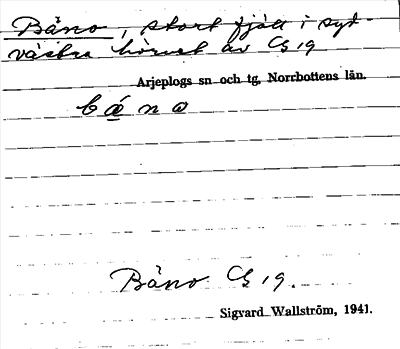 Båno, stort fjäll i syd-
västra hörnet av Cg 19
Arjeplogs sn och tg, Norrbottens län.
bá̱no
Båno Cg 19.
Sigvard Wallström, 1941.